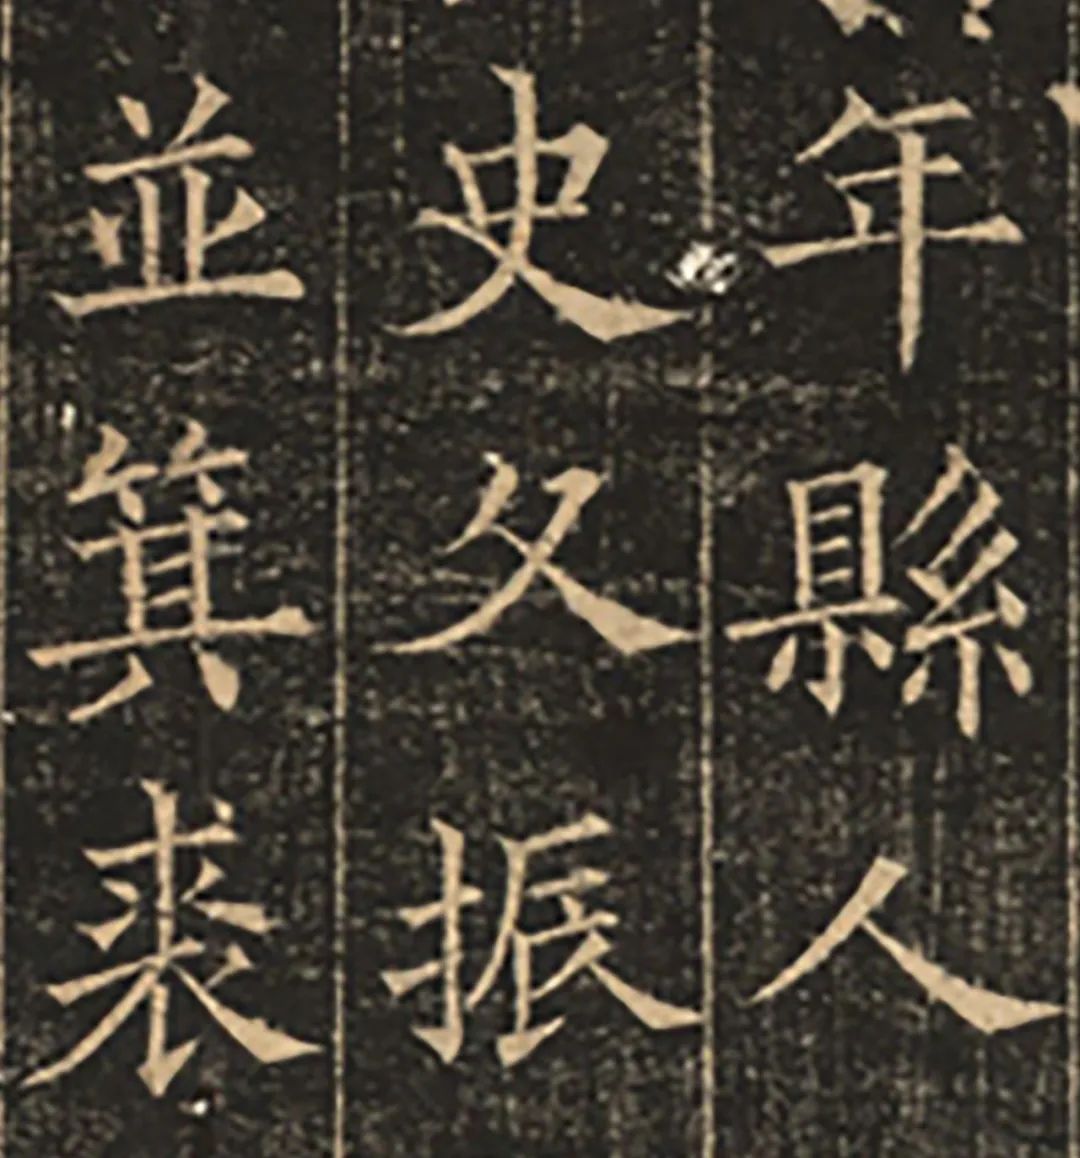 年縣人
史父振
並箕裘